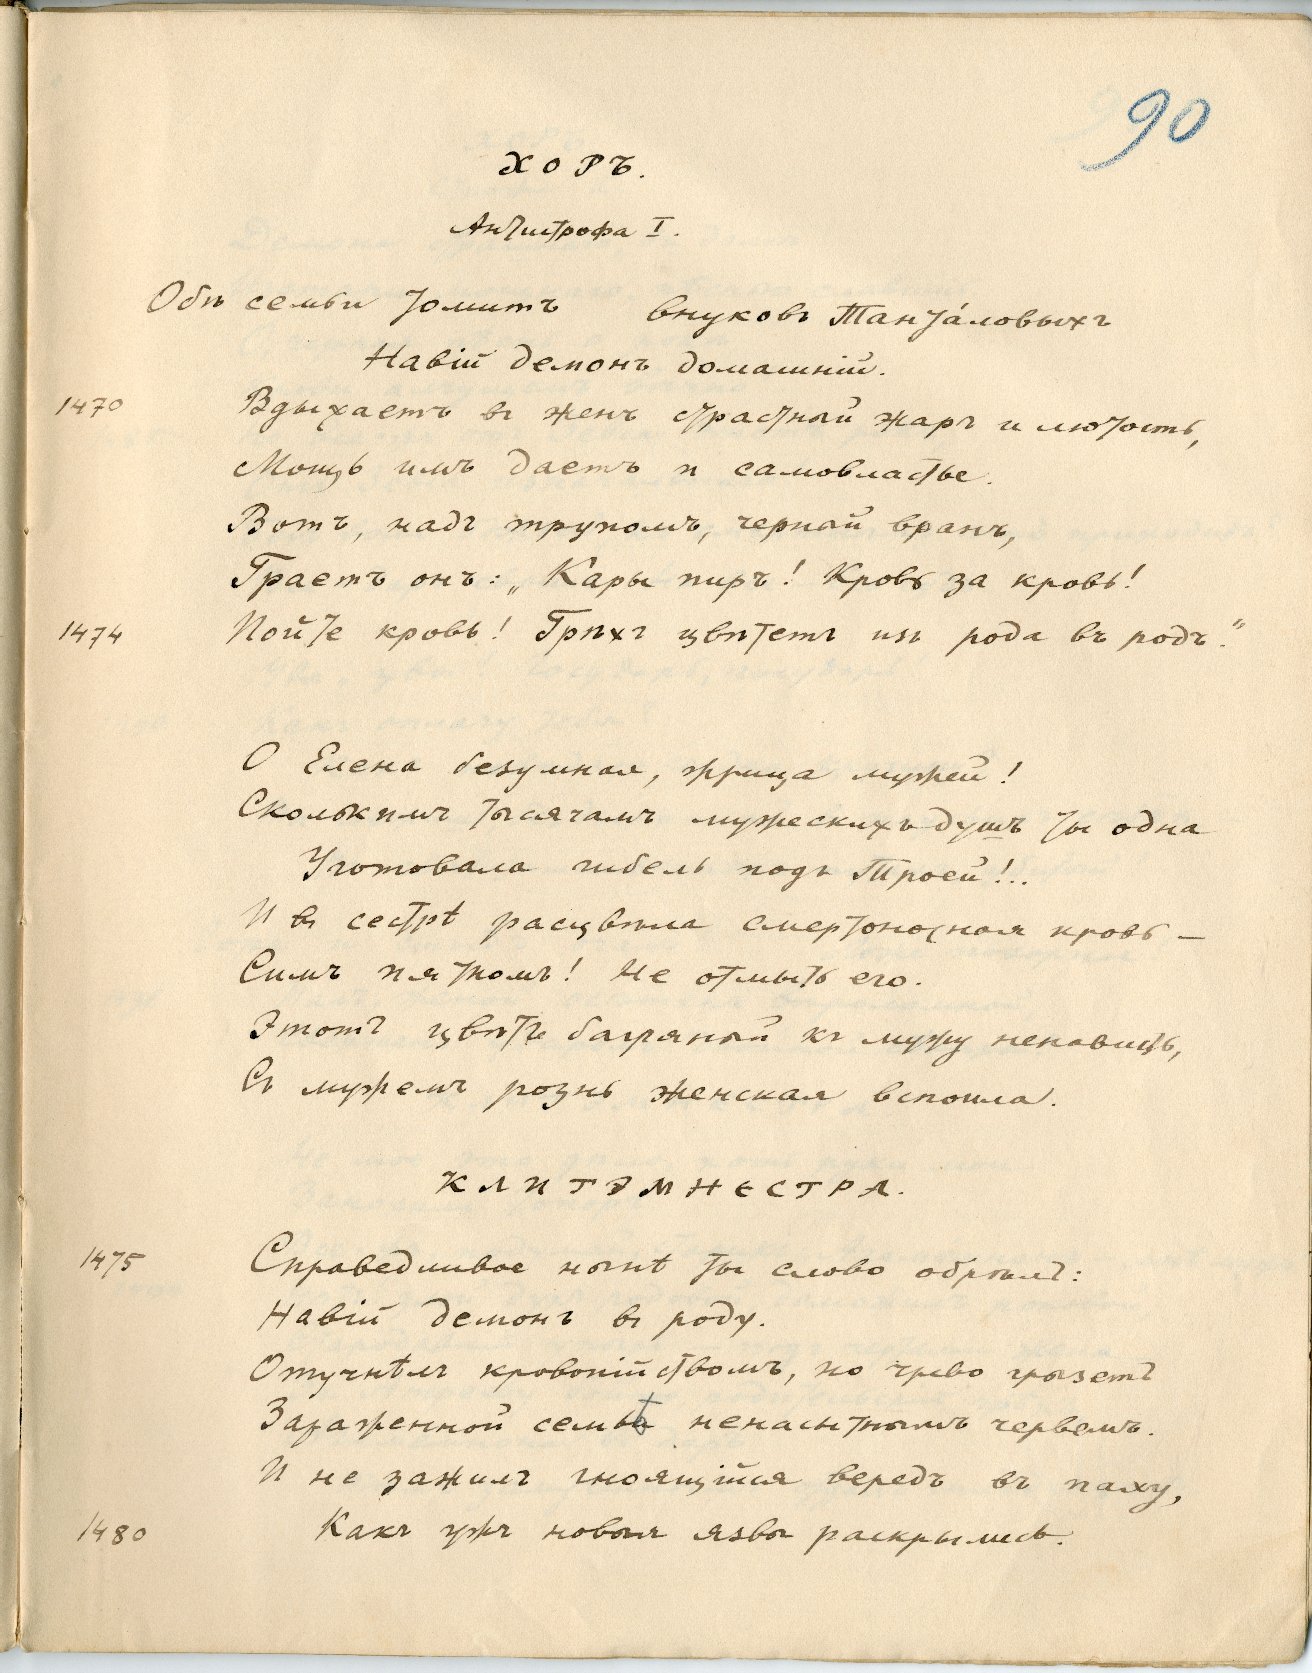 90
ХОРЪ.
Антистрофа I.
Обѣ семьи томитъ внуковъ Танта́ловыхъ
Навій демонъ домашній.
1470 Вдыхаетъ въ женъ страстный жаръ и лютость,
Мощь имъ даетъ и самовластье.
Вотъ, надъ трупомъ, черный вранъ,
Граетъ онъ: „Кары пиръ! Кровь за кровь!
1474 Пойте кровь! Грѣхъ цвѣтетъ изъ рода въ родъ."
О Елена безумная, жрица мужей!
Сколькимъ тысячамъ мужескихъ душъ ты одна
Уготовала гибель подъ Троей!..
И въ сестрѣ расцвѣла смертоносная кровь —
Симъ пятномъ! Не отмыть его.
Этотъ цвѣтъ багряный къ мужу ненависть,
Съ мужемъ рознь женская вспоила.
КЛИТЭМНЕСТРА.
1475 Справедливое нынѣ ты слово обрѣлъ:
Навій демонъ въ роду.
Отучнѣлъ кровопійствомъ, но чрево грызетъ
Зараженной семьѣ ненасытнымъ червемъ.
И не зажилъ гноящійся вередъ въ паху,
1480 Какъ ужъ новыя язвы раскрылись.